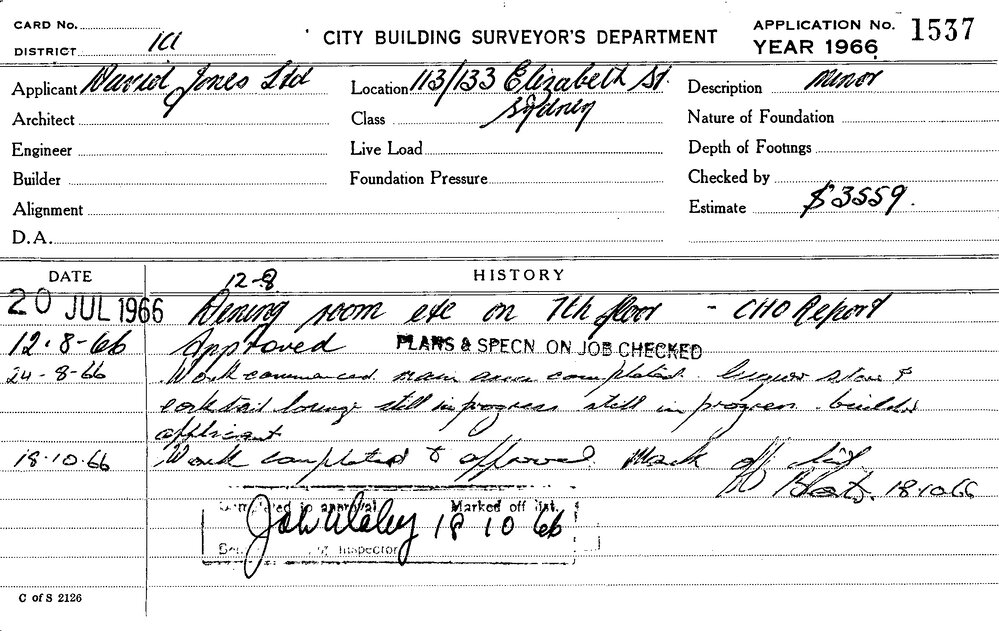 CARD No.
CITY BUILDING SURVEYOR'S DEPARTMENT
APPLICATION No. 1537
DISTRICT
YEAR 1966
Applicant David Jones Ltd
Location 113/133 Elizabeth St.
Sydney
Description Minor
Architect
Class
Nature of Foundation
Engineer
Live Load
Depth of Footings
Builder
Foundation Pressure
Checked by
Alignment
Estimate $3559.
D.A.
DATE
HISTORY
12-8
20 JUL 1966 Dining room etc on 7th floor - CHO Report
12.8-66 Approved PLANS & SPECN ON JOB CHECKED
24-8-66 Work commenced. main area completed. liquor store &
cocktail lounge still in progress still in progress. builder
applicant
18.10.66 Work completed to approval. Mark off list
18-10-66
Completed to approval Marked off list.
18 10 66
Inspector
C of S 2126